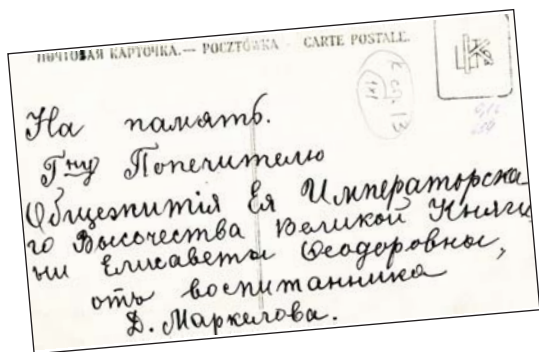 ПОЧТОВАЯ КАРТОЧКА.— POCZTÓWKA - CARTE POSTALE.
На память.
Гну Попечителю
Общежитія Ея Императорска-
го Высочества Великой Княги-
ни Елисаветы Ѳеодоровны,
отъ воспитанника
Д. Маркелова.